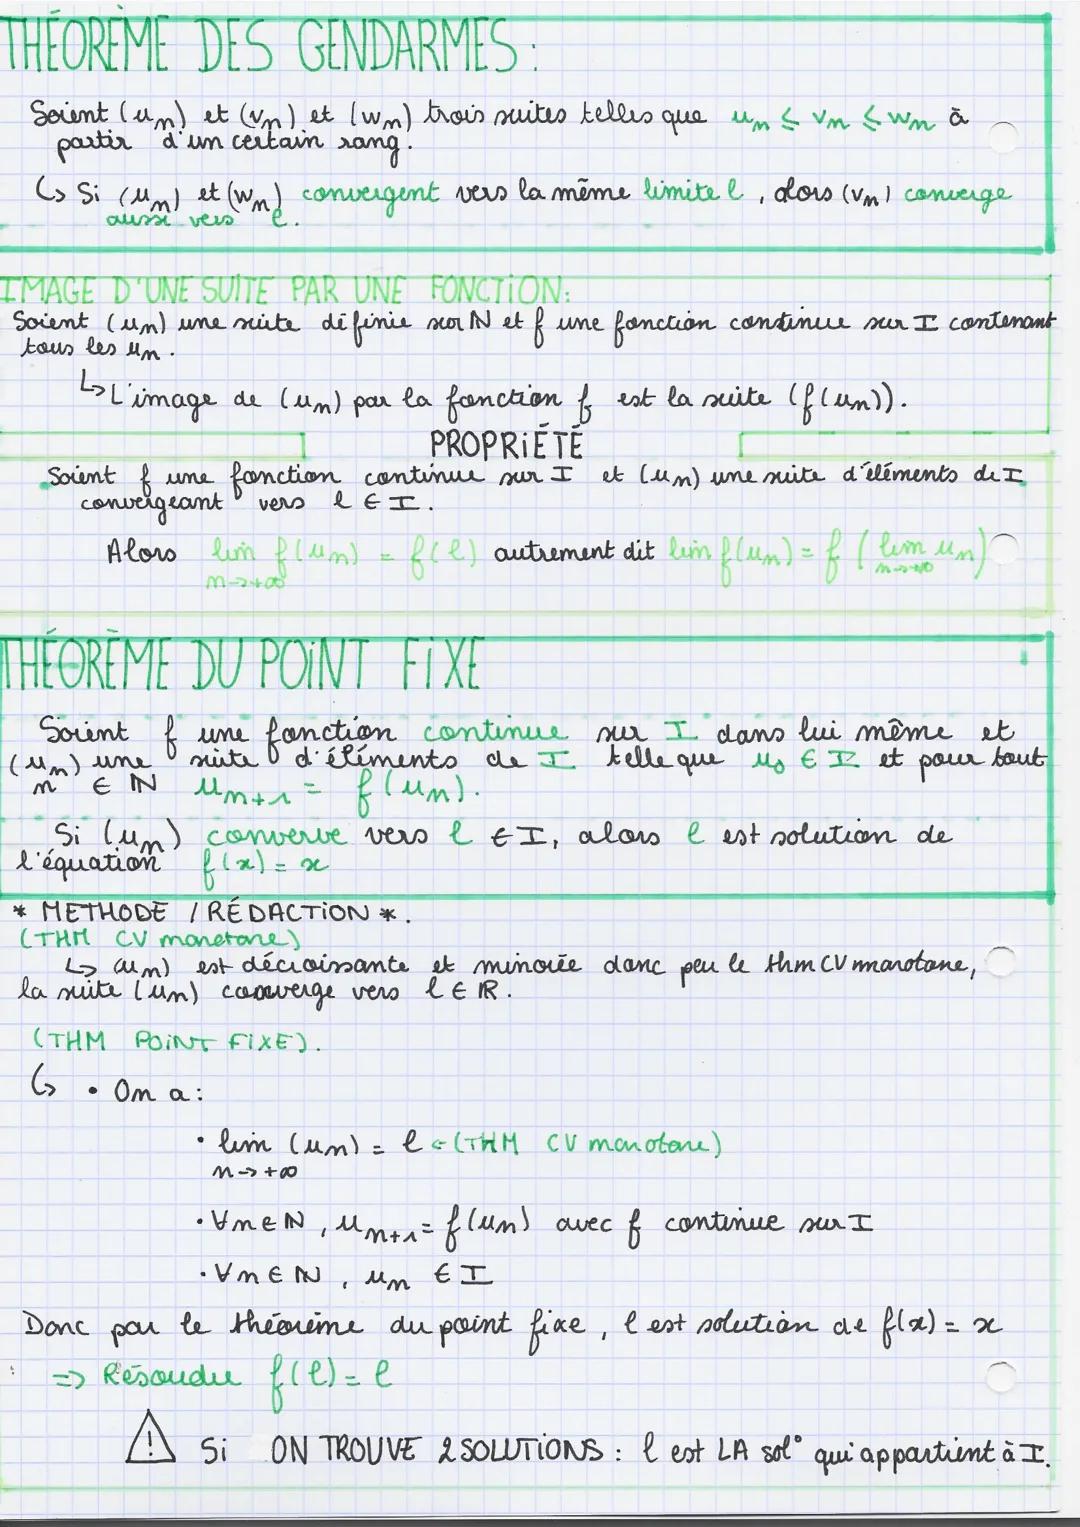 THÉORÈME DES GENDARMES :
Soient (un) et (vn) et (wn) trois suites telles que un ≤ vn ≤ wn à
partir d'un certain rang.
↳ Si (un) et (wn) convergent vers la même limite l, alors (vn) converge
aussi vers l.
IMAGE D'UNE SUITE PAR UNE FONCTION:
Soient (un) une suite définie sur ℕ et f une fonction continue sur I contenant
tous les un.
↳ L'image de (un) par la fonction f est la suite (f(un)).
PROPRIÉTÉ
Soient f une fonction continue sur I et (un) une suite d'éléments de I
convergeant vers l ∈ I.
Alors lim f(un) = f(l) autrement dit lim f(un) = f(lim un)
n→+∞ n→+∞
THÉORÈME DU POINT FIXE
Soient f une fonction continue sur I dans lui même et
(un) une suite d'éléments de I telle que u0 ∈ I et pour tout
n ∈ ℕ un+1 = f(un).
Si (un) converve vers l ∈ I, alors l est solution de
l'équation f(x) = x
* METHODE / RÉDACTION *.
(THM CV monotone)
↳ (un) est décroissante et minorée donc par le thm CV monotone,
la suite (un) converge vers l ∈ ℝ.
(THM POINT FIXE).
↳ • On a :
• lim (un) = l ← (THM CV monotone)
n→+∞
• ∀n ∈ ℕ, un+1 = f(un) avec f continue sur I
• ∀n ∈ ℕ, un ∈ I
Donc par le théorème du point fixe, l est solution de f(x) = x
⇒ Résoudre f(l) = l
⚠ Si ON TROUVE 2 SOLUTIONS : l est LA sol° qui appartient à I.